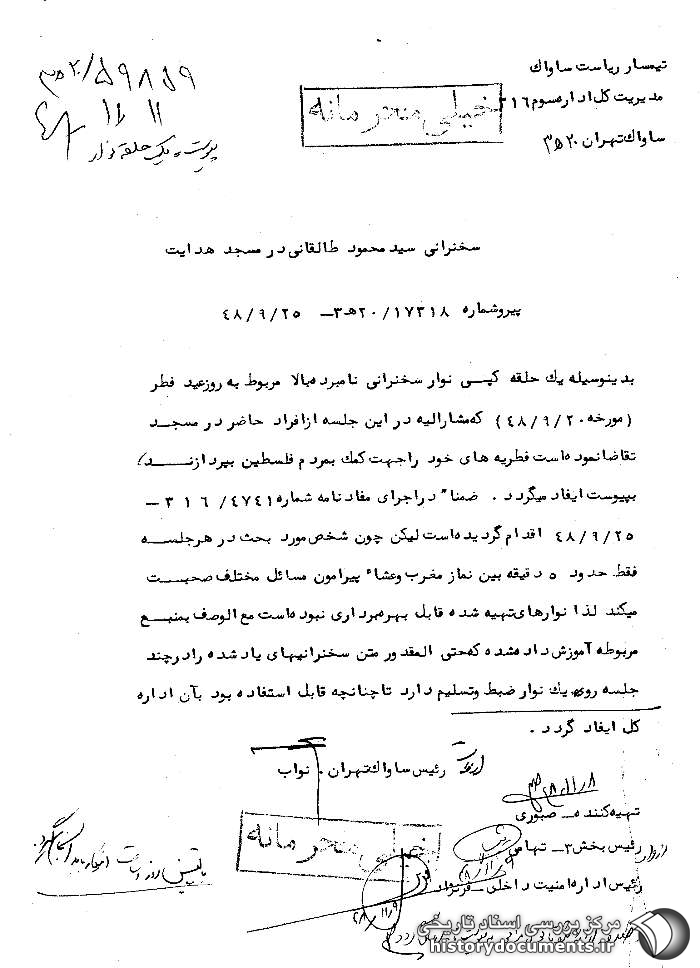 تیمسار ریاست ساواک
مدیریت کل اداره سوم ۳۱۶
ساواک تهران ۲۰ ه‍ ۳
خیلی محرمانه
۲۰ ه‍ ۳/۵۹۸۵۹
۴۸/۱۱/۱۱
پیوست یک حلقه نوار
سخنرانی سید محمود طالقانی در مسجد هدایت
پیرو شماره ۲۰/۱۷۳۱۸ ه‍ ۳ – ۴۸/۹/۲۵
بدینوسیله یک حلقه کپی نوار سخنرانی نامبرده بالا مربوط به روز عید فطر
(مورخه ۴۸/۹/۲۰) که مشارالیه در این جلسه از افراد حاضر در مسجد
تقاضا نموده است فطریه های خود را جهت کمک بمردم فلسطین بپردازنـــد)
بپیوست ایفاد میگردد . ضمنا" در اجرای مفاد نامه شماره ۴۷۴۱/ ۳۱۶ –
۴۸/۹/۲۵ اقدام گردیده است لیکن چون شخص مورد بحث در هر جلسه
فقط حدود ۵ دقیقه بین نماز مغرب و عشاء پیرامون مسائل مختلف صحبت
میکند لذا نوارهای تهیه شده قابل بهره برداری نبوده است مع الوصف بمنبع
مربوطه آموزش داده شده که حتی المقدور متن سخنرانیهای یاد شده را در چند
جلسه روی یک نوار ضبط و تسلیم دارد تا چنانچه قابل استفاده بود بآن اداره
کل ایفاد گردد .
رئیس ساواک تهران . نواب
تهیه کننده – صبوری
رئیس بخش ۳ – تهامی
رئیس اداره امنیت داخلی – فرنژاد
خیلی محرمانه
۴۸/۱۱/۸
۴۸/۱۱/۹
مرکز بررسی اسناد تاریخی
historydocuments.ir